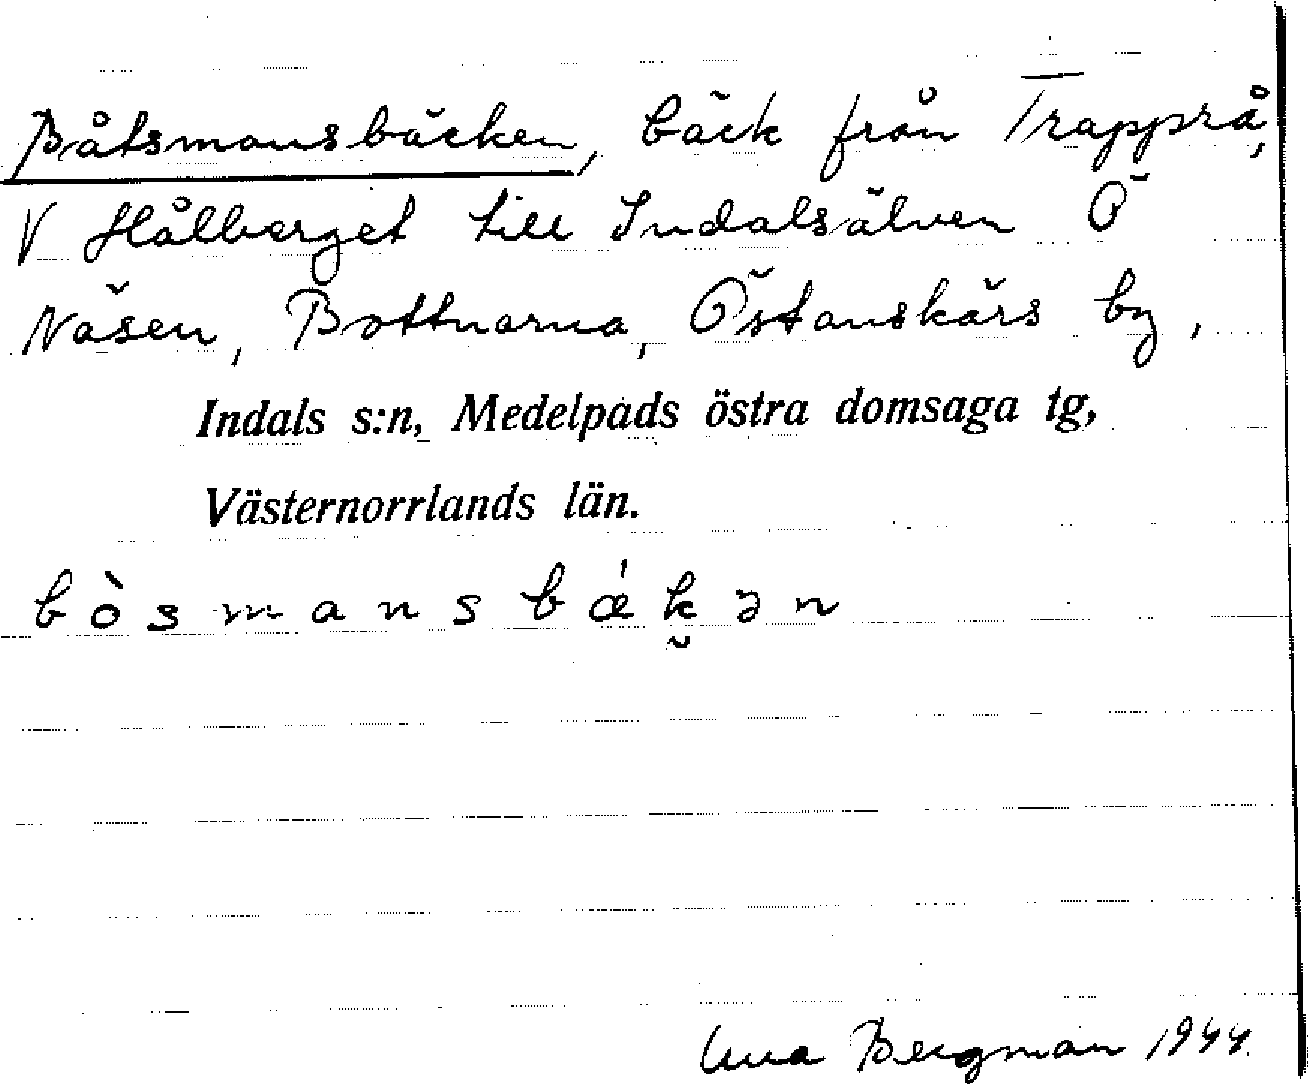 Båtsmansbäcken, bäck från Trapprå,
V Hålberget till Indalsälven Ö
Näsen, Bottnarna, Östanskärs by,
Indals s:n, Medelpads östra domsaga tg,
Västernorrlands län.
bòsmansbǽk̮ən
Bergman 1944.